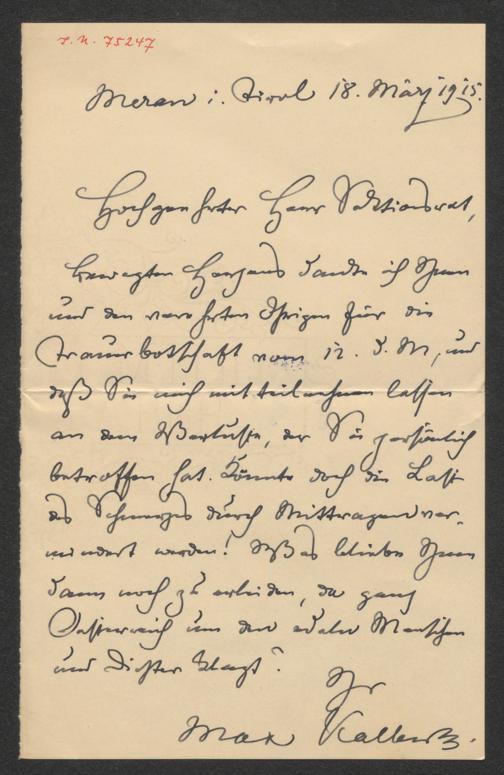 I.N. 75247
Meran i. Tirol 18. März 1915.
Hochgeehrter Herr Sektionsrat,
bewegten Herzens danke ich Ihnen
und den verehrten Ihrigen für die
Trauerbotschaft vom 12. d. M, und
daß Sie mich mitteilnehmen lassen
an dem Verluste, der Sie persönlich
betroffen hat. Könnte doch die Last
des Schmerzes durch Mittragen ver-
mindert werden! Was bliebe Ihnen
dann noch zu erleiden, da ganz
Oesterreich um den edeln Menschen
und Dichter klagt?
Ihr
Max Kalbeck.